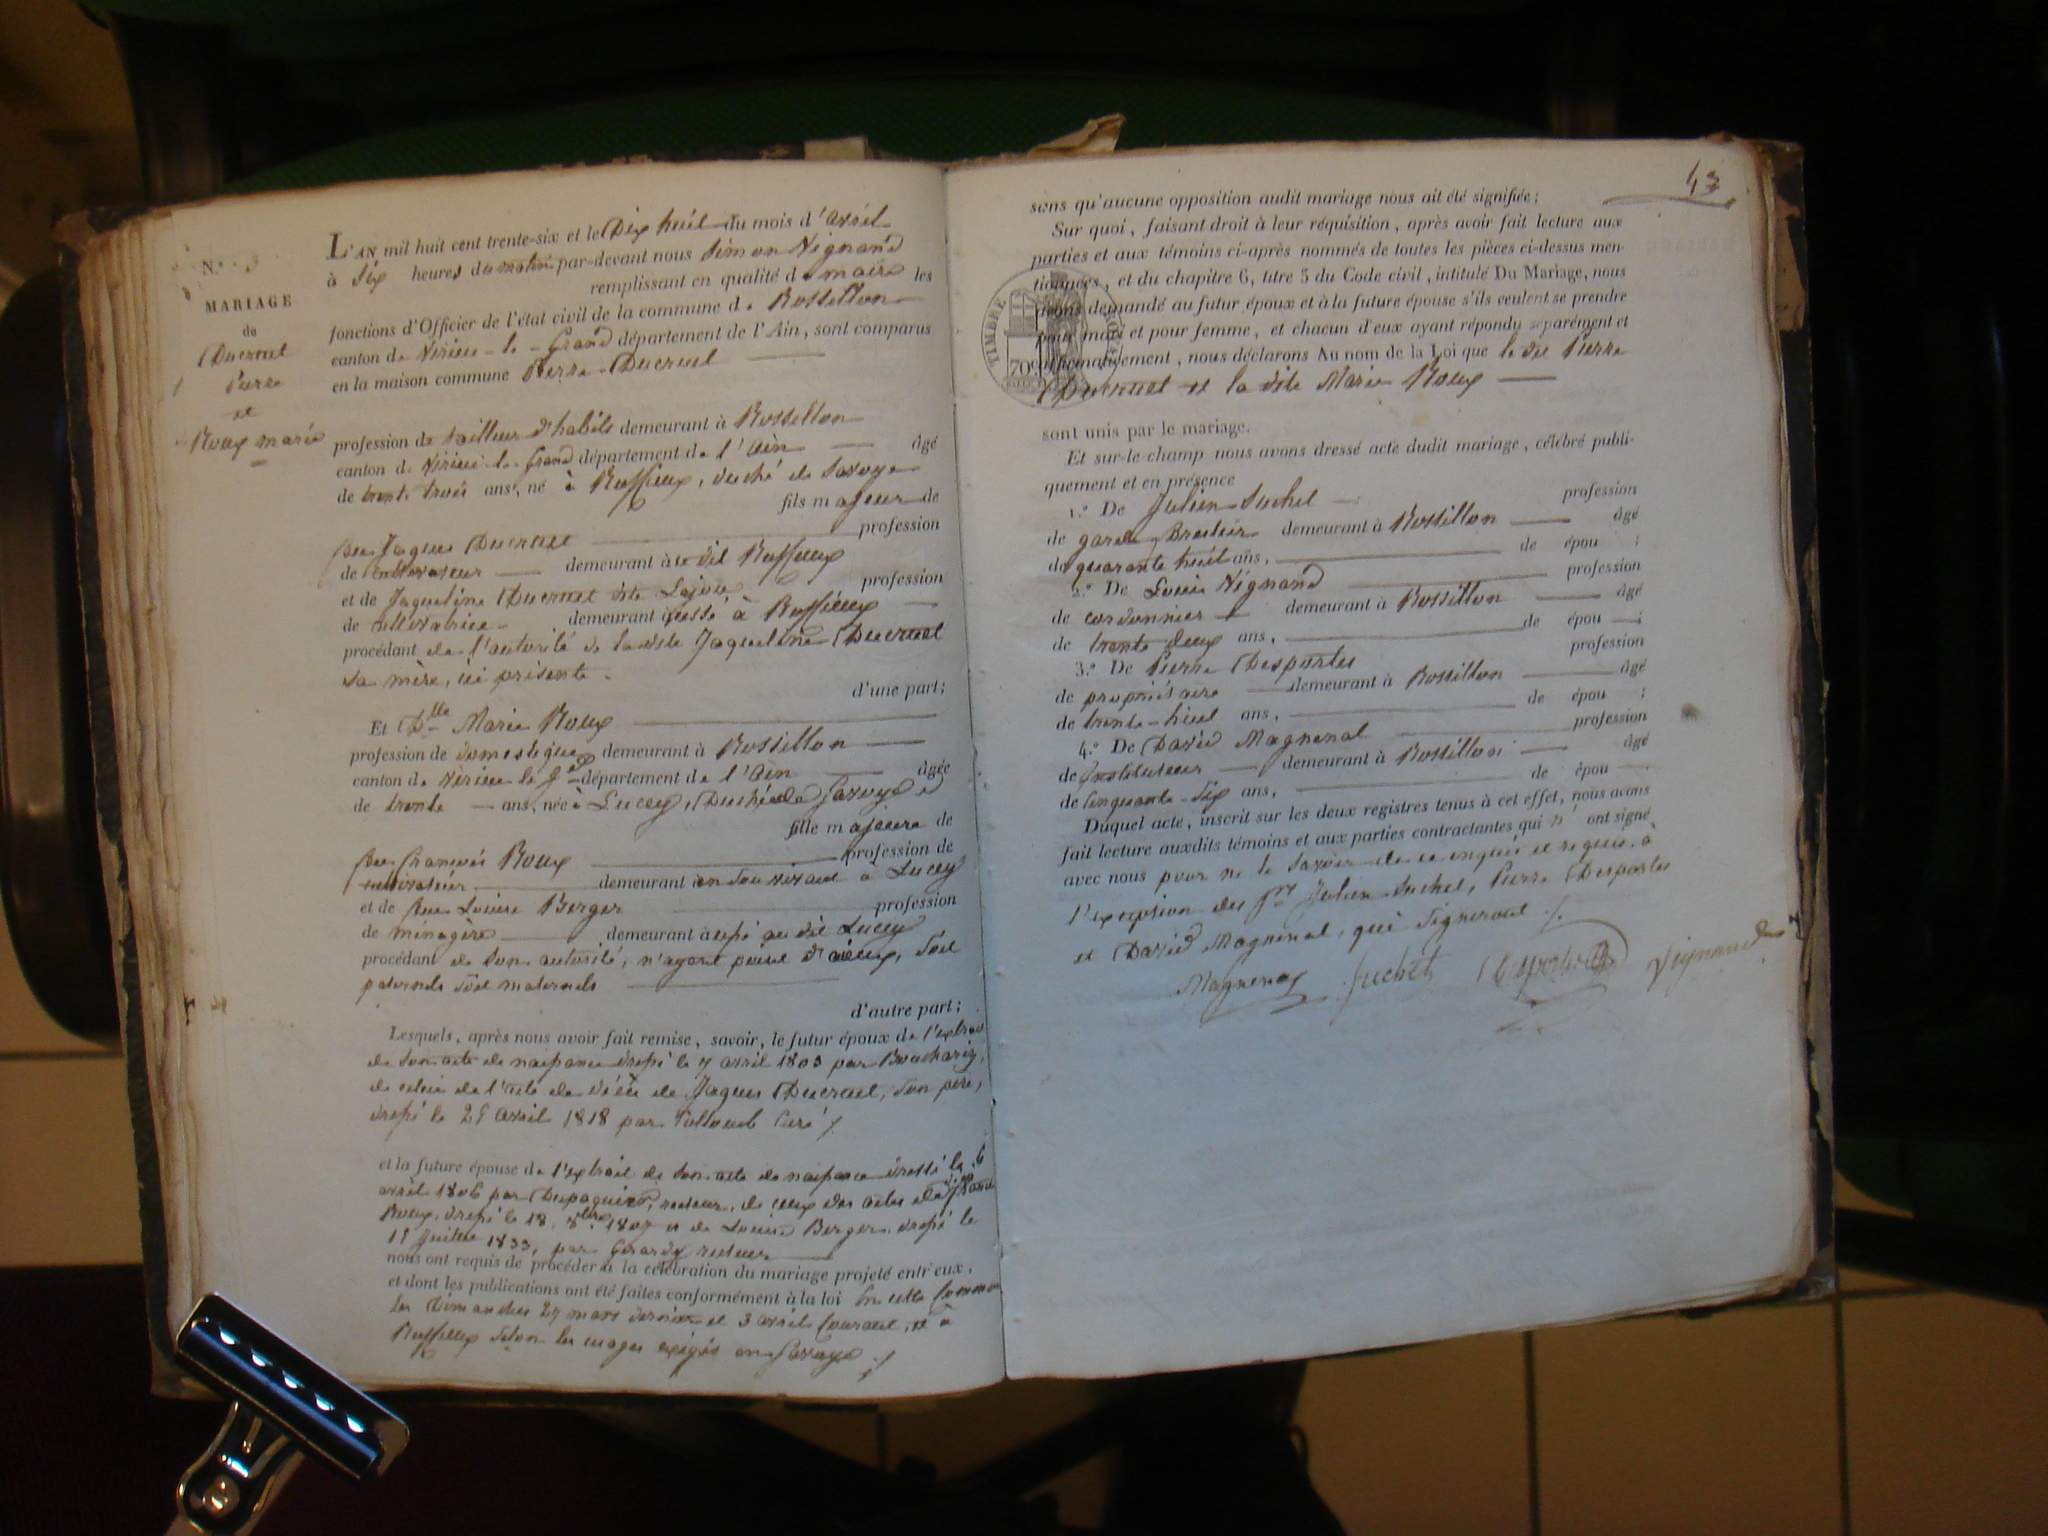 N.º 3
MARIAGE
de
Ducruet
Pierre
et
Roux marie
L'AN mil huit cent trente-six et le Dix huit du mois d'avril
à Six heures du matin par-devant nous Simon Vignand
remplissant en qualité de maire les
fonctions d'Officier de l'état civil de la commune de Rossillon
canton de Virieu-le-Grand département de l'Ain, sont comparus
en la maison commune Pierre Ducruet
profession de tailleur d'habits demeurant à Rossillon
canton de Virieu-le-Grand département de l'Ain âgé
de trente trois ans, né à Ruffieux, duché de Savoye
fils majeur de
feu Jaques Ducruet profession
de Cultivateur demeurant au dit Ruffieux
et de Jaqueline Ducruet dite Lajoie profession
de cultivatrice demeurant aussi à Ruffieux
procédant de l'autorité de la dite Jaqueline Ducruet
sa mère, ici présente.
d'une part;
Et Dlle Marie Roux
profession de domestique demeurant à Rossillon
canton de Virieu le Gd département de l'Ain âgée
de trente ans, née à Lucey, Duché de Savoye
fille majeure de
feu francois Roux profession de
cultivateur demeurant en son vivant à Lucey
et de feue Louise Berger profession
de ménagère demeurant aussi au dit Lucey
procédant de son autorité, n'ayant point d'aieux, soit
paternels soit maternels
d'autre part;
Lesquels, après nous avoir fait remise, savoir, le futur époux de l'extrait
de son acte de naissance dressé le 7 avril 1803 par
de celui de l'acte de décès de Jaques Ducruet, son père,
dressé le 29 avril 1818 par Collomb Curé ./.
et la future épouse de l'extrait de son acte de naissance dressé le 6
avril 1806 par recteur, de ceux des actes de décès de
Roux, dressé le 18 8bre 1807 et de Louise Berger dressé le
15 Juillet 1833, par recteur
nous ont requis de procéder à la célébration du mariage projeté entr'eux,
et dont les publications ont été faites conformément à la loi En cette Commune
les Dimanches 27 mars dernier et 3 avril Courant, et à
Ruffieux selon les usages exigés en Savoye ./.
43
sons qu'aucune opposition audit mariage nous ait été signifiée;
Sur quoi, faisant droit à leur réquisition, après avoir fait lecture aux
parties et aux témoins ci-après nommés de toutes les pièces ci-dessus men-
tionnées, et du chapitre 6, titre 5 du Code civil, intitulé Du Mariage, nous
avons demandé au futur époux et à la future épouse s'ils veulent se prendre
pour mari et pour femme, et chacun d'eux ayant répondu séparément et
affirmativement, nous déclarons Au nom de la Loi que le dit Pierre
Ducruet et la dite Marie Roux
TIMBRE ROYAL
70c
sont unis par le mariage.
Et sur-le-champ nous avons dressé acte dudit mariage, célébré publi-
quement et en présence
1.º De Julien Suchet profession
de garde forestier demeurant à Rossillon âgé
de quarante huit ans, de épou ;
2.º De Louis Vignand profession
de cordonnier demeurant à Rossillon âgé
de trente deux ans, de épou ;
3.º De Pierre Desportes profession
de propriétaire demeurant à Rossillon âgé
de trente-huit ans, de épou ;
4.º De David Magnenat profession
de Instituteur demeurant à Rossillon âgé
de Cinquante-Six ans, de épou
Duquel acte, inscrit sur les deux registres tenus à cet effet, nous avons
fait lecture auxdits témoins et aux parties contractantes qui n'ont signé
avec nous pour ne le savoir de ce enquis et requis, à
l'exception des Srs Julien Suchet, Pierre Desportes
et David Magnenat, qui Signeront ./.
Magnenat Suchet Desportes Vignand